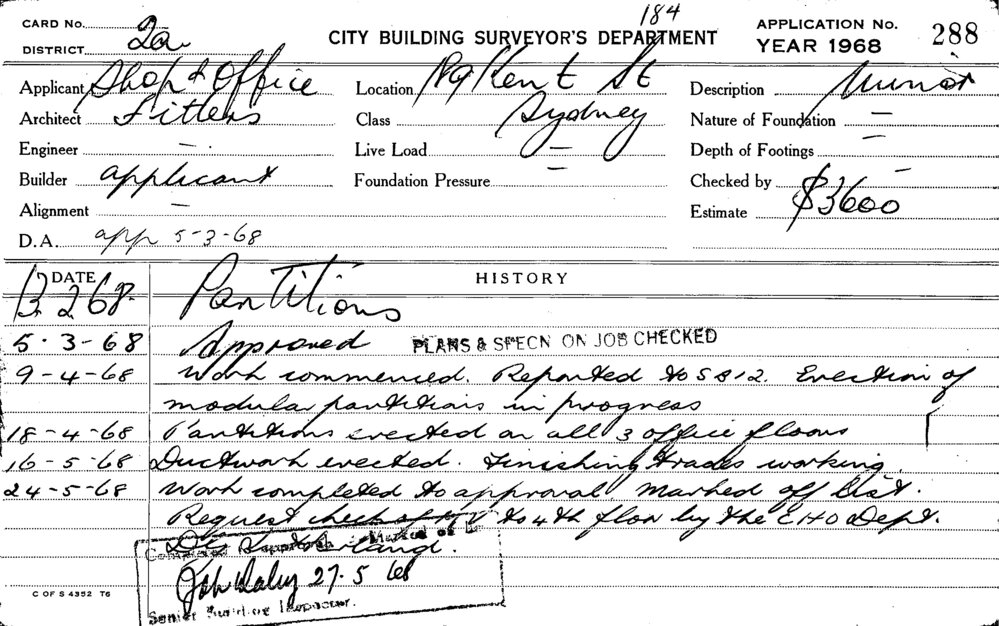 184
CARD No.
CITY BUILDING SURVEYOR'S DEPARTMENT
APPLICATION No. 288
YEAR 1968
DISTRICT 2a
Applicant Shop & Office
Location Kent St
Description Minor
Architect Fitters
Class Sydney
Nature of Foundation —
Engineer —
Live Load —
Depth of Footings —
Builder applicant
Foundation Pressure —
Checked by
Alignment —
Estimate $3600
D.A. app 5-3-68
DATE
HISTORY
13.2.68 Partitions
5.3-68 Approved PLANS & SPECN ON JOB CHECKED
9-4-68 Work commenced. Reported to S 812. Erection of
modular partitions in progress
18-4-68 Partitions erected on all 3 office floors
16-5-68 Ductwork erected. Finishing trades working.
24-5-68 Work completed to approval marked off list.
Request check to 4th floor by the EHO Dept.
Completed Marked off
27.5 68
Senior Building Inspector.
C OF S 4352 T6